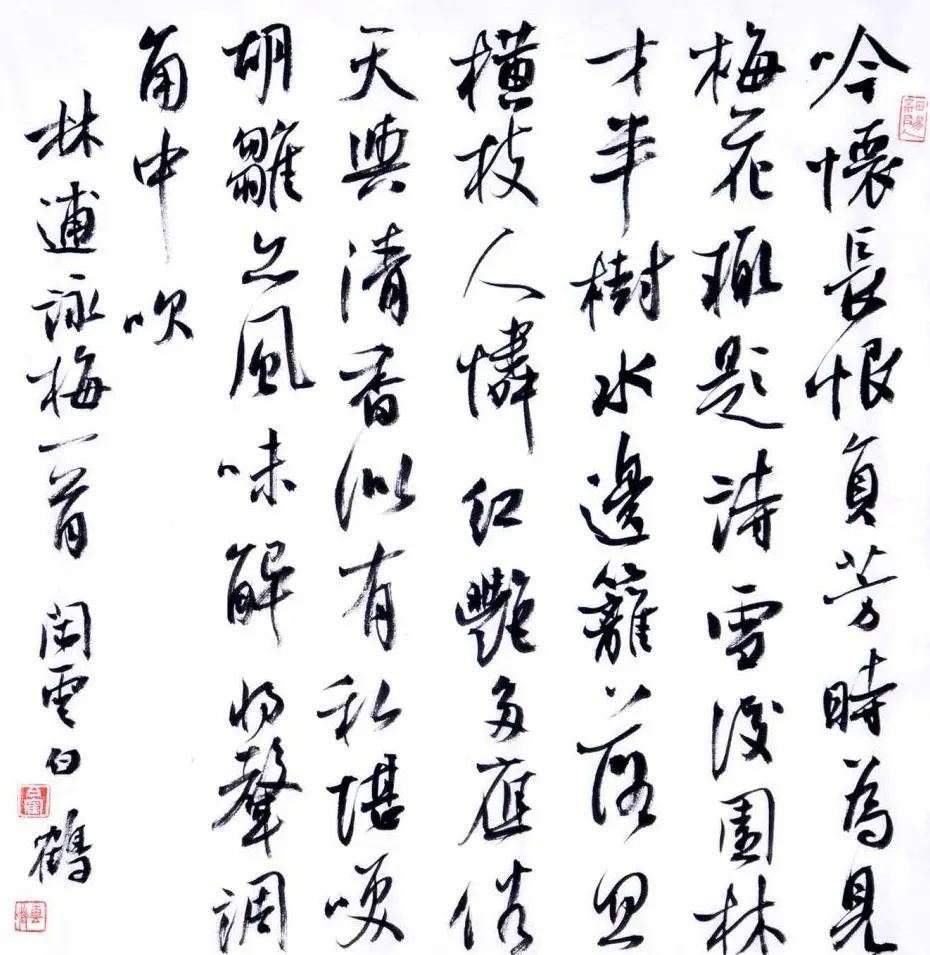 吟懷長恨負芳時為見
梅花輒題詩雪後園林
才半樹水邊籬落忽
橫枝人憐紅艷多應俗
天與清香似有私堪咲
胡雛亦風味解將聲調
角中吹
林逋詠梅一首 閩雲白鶴